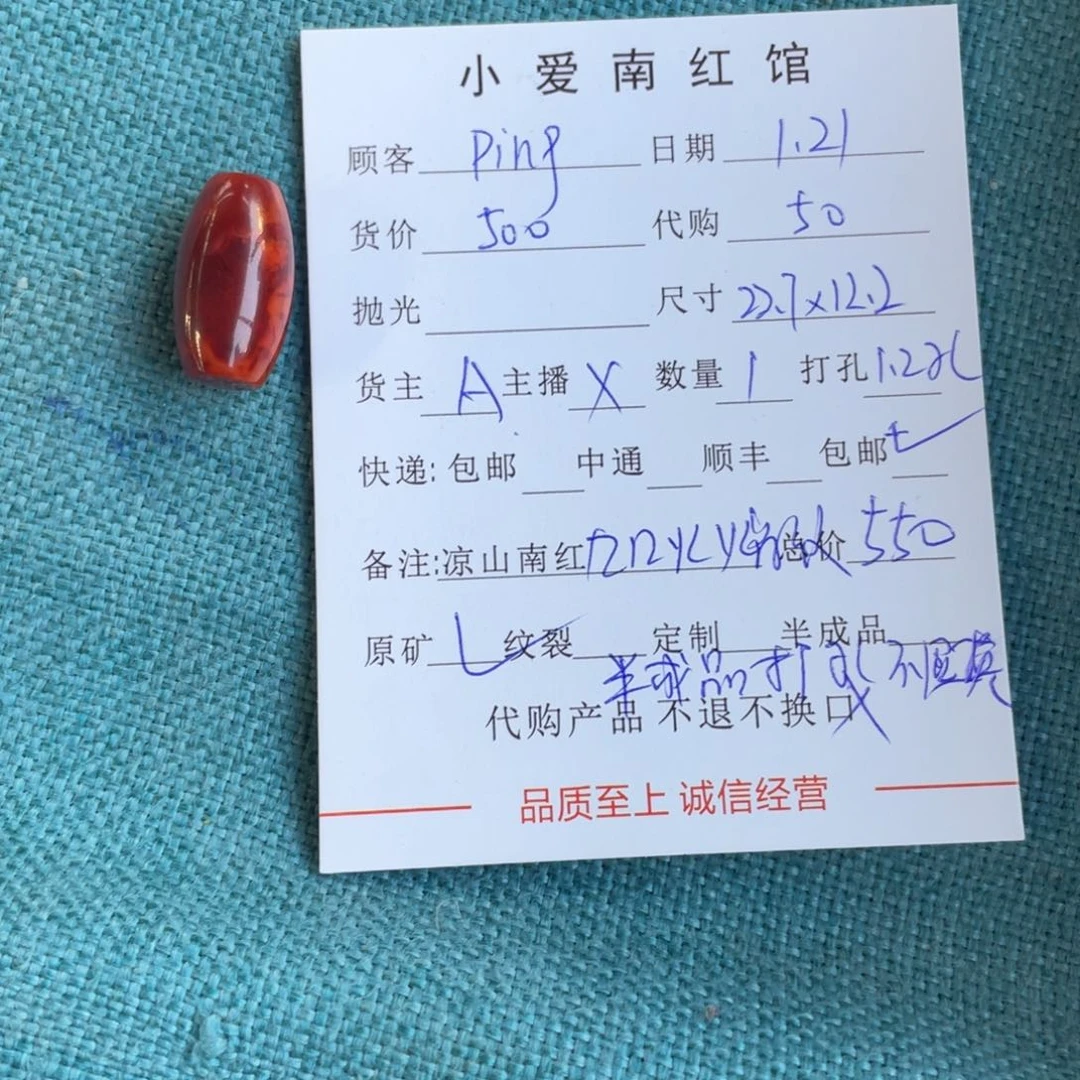 小爱南红馆
顾客 Ping 日期 1.21
货价 500 代购 50
抛光 尺寸 22.7x12.2
货主 A 主播 X 数量 1 打孔 1.2
快递: 包邮 中通 顺丰 包邮
备注:凉山南红 总价 550
原矿 纹裂 定制 半成品
半成品打孔不退换
代购产品 不退不换口
品质至上 诚信经营